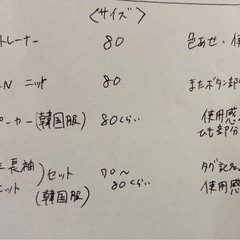 〈サイズ〉
トレーナー 80 色あせ・使
N ニット 80 またボタン部分
ーカー(韓国服) 80くらい 使用感
ひも部分
長袖 ) セット 70〜 タグ記名
ニット (韓国服) 80くらい 使用感